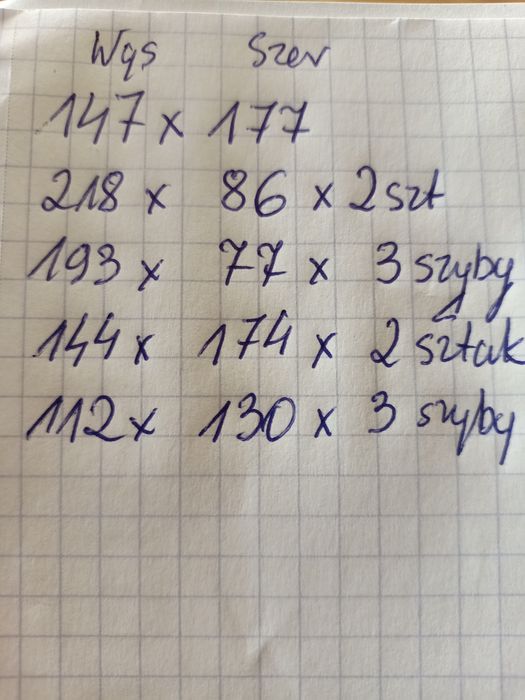 Wys Szer
147 x 177
218 x 86 x 2 szt
193 x 77 x 3 szyby
144 x 174 x 2 sztuk
112 x 130 x 3 szyby